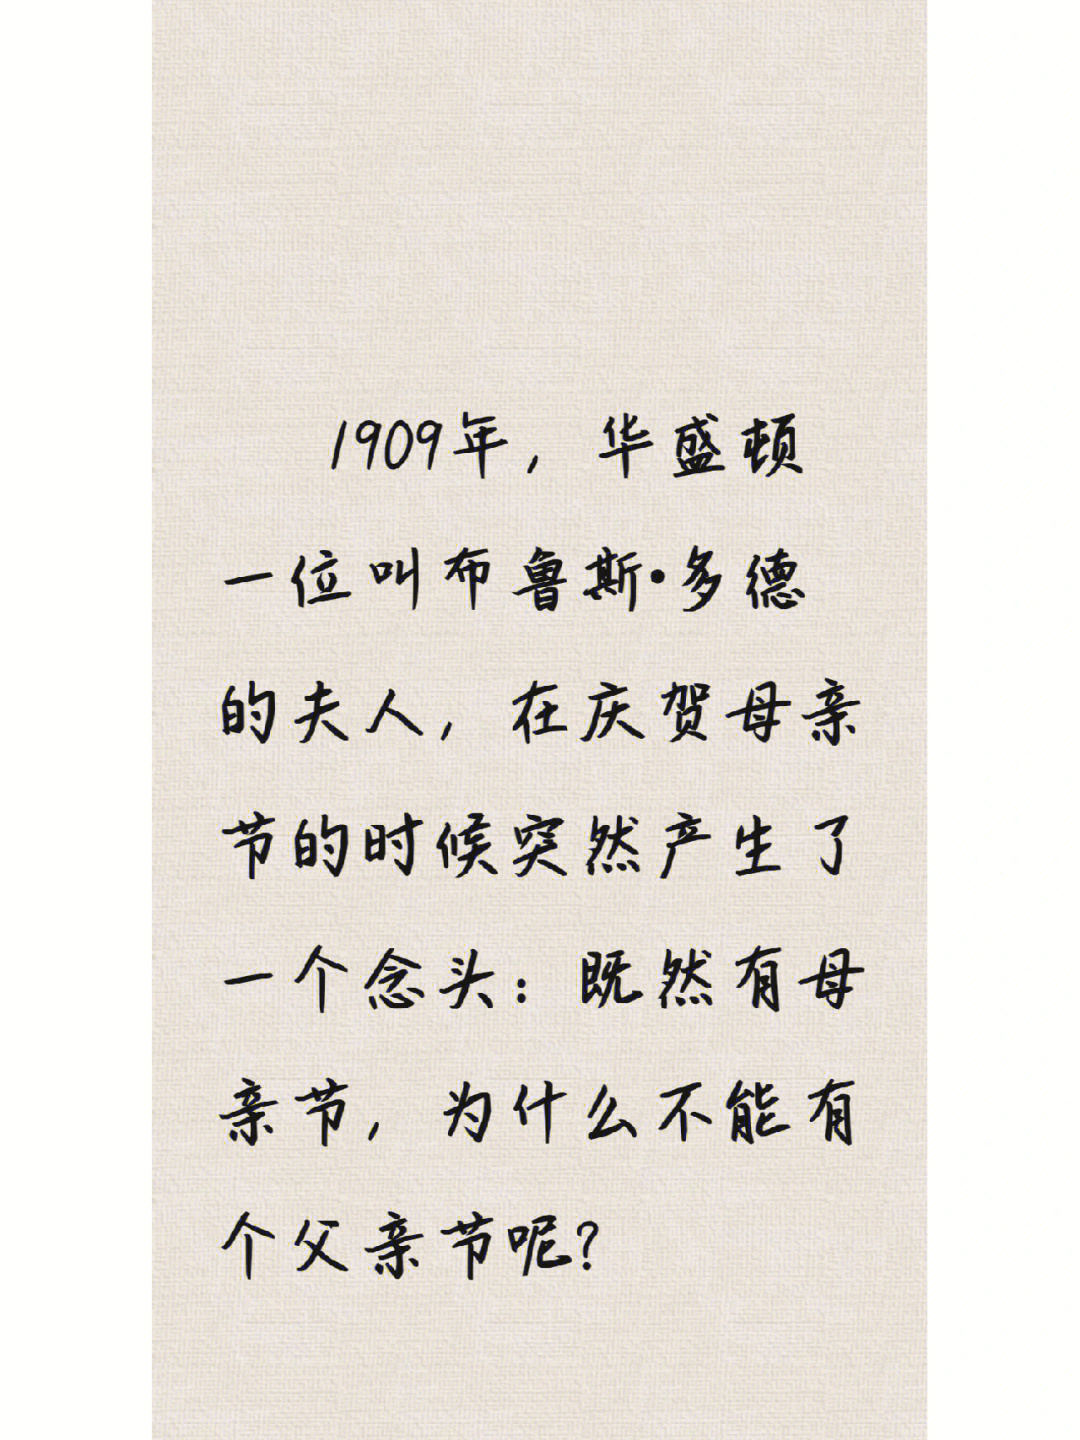 1909年，华盛顿
一位叫布鲁斯·多德
的夫人，在庆贺母亲
节的时候突然产生了
一个念头：既然有母
亲节，为什么不能有
个父亲节呢？